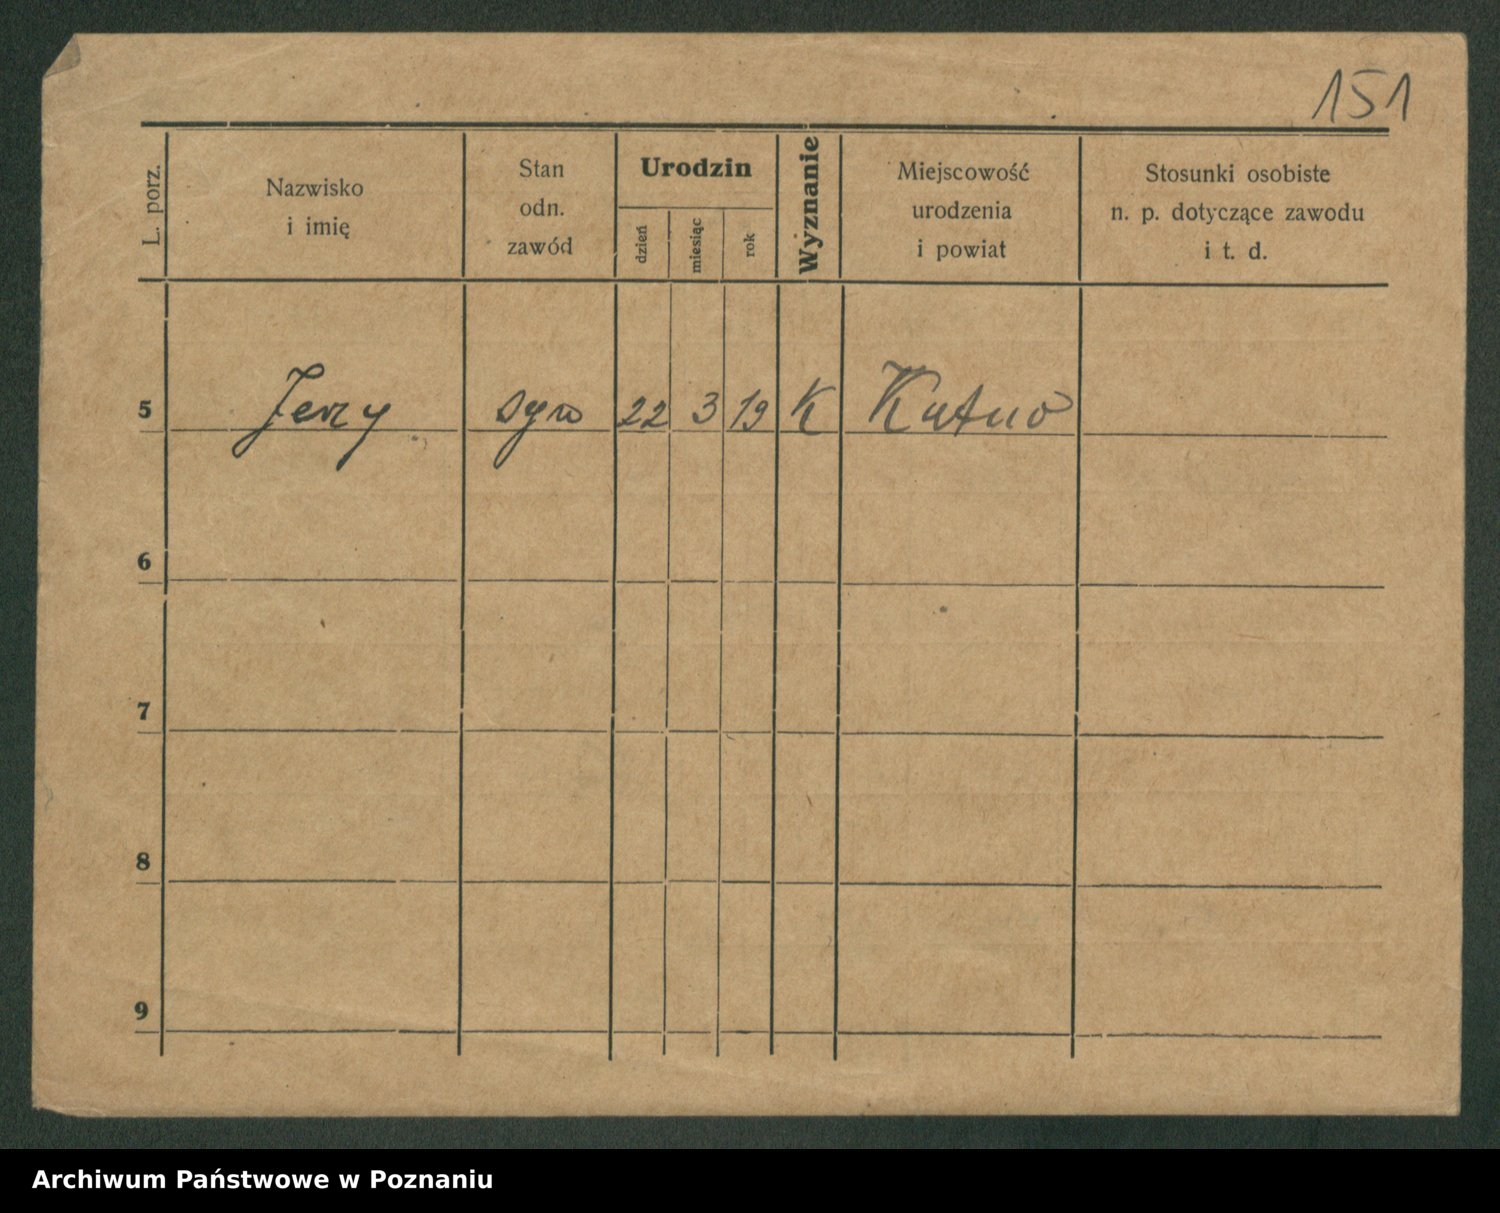 151
L. porz.
Nazwisko
i imię
Stan
odn.
zawód
Urodzin
dzień
miesiąc
rok
Wyznanie
Miejscowość
urodzenia
i powiat
Stosunki osobiste
n. p. dotyczące zawodu
i t. d.
5 Jerzy syn 22 3 19 K
6
7
8
9
Archiwum Państwowe w Poznaniu